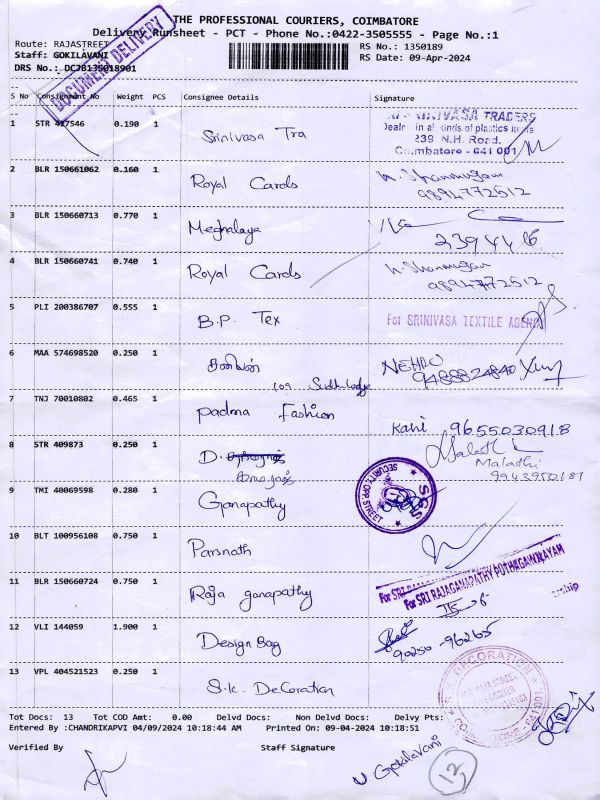 THE PROFESSIONAL COURIERS, COIMBATORE
Delivery Runsheet - PCT - Phone No.:0422-3505555 - Page No.:1
Route: RAJASTREET
RS No.: 1350189
Staff: GOKILAVANI
RS Date: 09-Apr-2024
DRS No.: DCJB135018901
DOCUMENT DELIVERY
S No Consignment No Weight PCS Consignee Details Signature
1 STR 427546 0.190 1 Srinivasa Tra
SRINIVASA TRADERS
Dealer in all kinds of plastics items
239 N.H. Road.
Coimbatore - 641 001
2 BLR 150661062 0.160 1 Royal Cards N. Shanmugam
9894772512
3 BLR 150660713 0.770 1 Meghalaya
23944 16
4 BLR 150660741 0.740 1 Royal Cards N. Shanmugam
9894772512
5 PLI 200386707 0.555 1 B.P. Tex For SRINIVASA TEXTILE AGENCY
6 MAA 574698520 0.250 1 NEHRU
9488824840
109 Sudhi Lodge
7 TNJ 70010802 0.465 1 Padma Fashion Kani 9655030918
8 STR 409873 0.250 1 D. Malathi
9943950187
9 TMI 40069598 0.280 1 Ganapathy
SGS
SECURITY, OPP STREET
10 BLT 100956108 0.750 1 Parsnath
11 BLR 150660724 0.750 1 Raja ganapathy
For SRI RAJAGANAPATHY POTHIGAINILAYAM
12 VLI 144059 1.900 1 Design Bag 90250-96265
13 VPL 404521523 0.250 1 S.K. Decoration
DECORATION
Tot Docs: 13 Tot COD Amt: 0.00 Delvd Docs: Non Delvd Docs: Delvy Pts:
Entered By :CHANDRIKAPVI 04/09/2024 10:18:44 AM Printed On: 09-04-2024 10:18:51
Verified By Staff Signature
Gokilavani
12